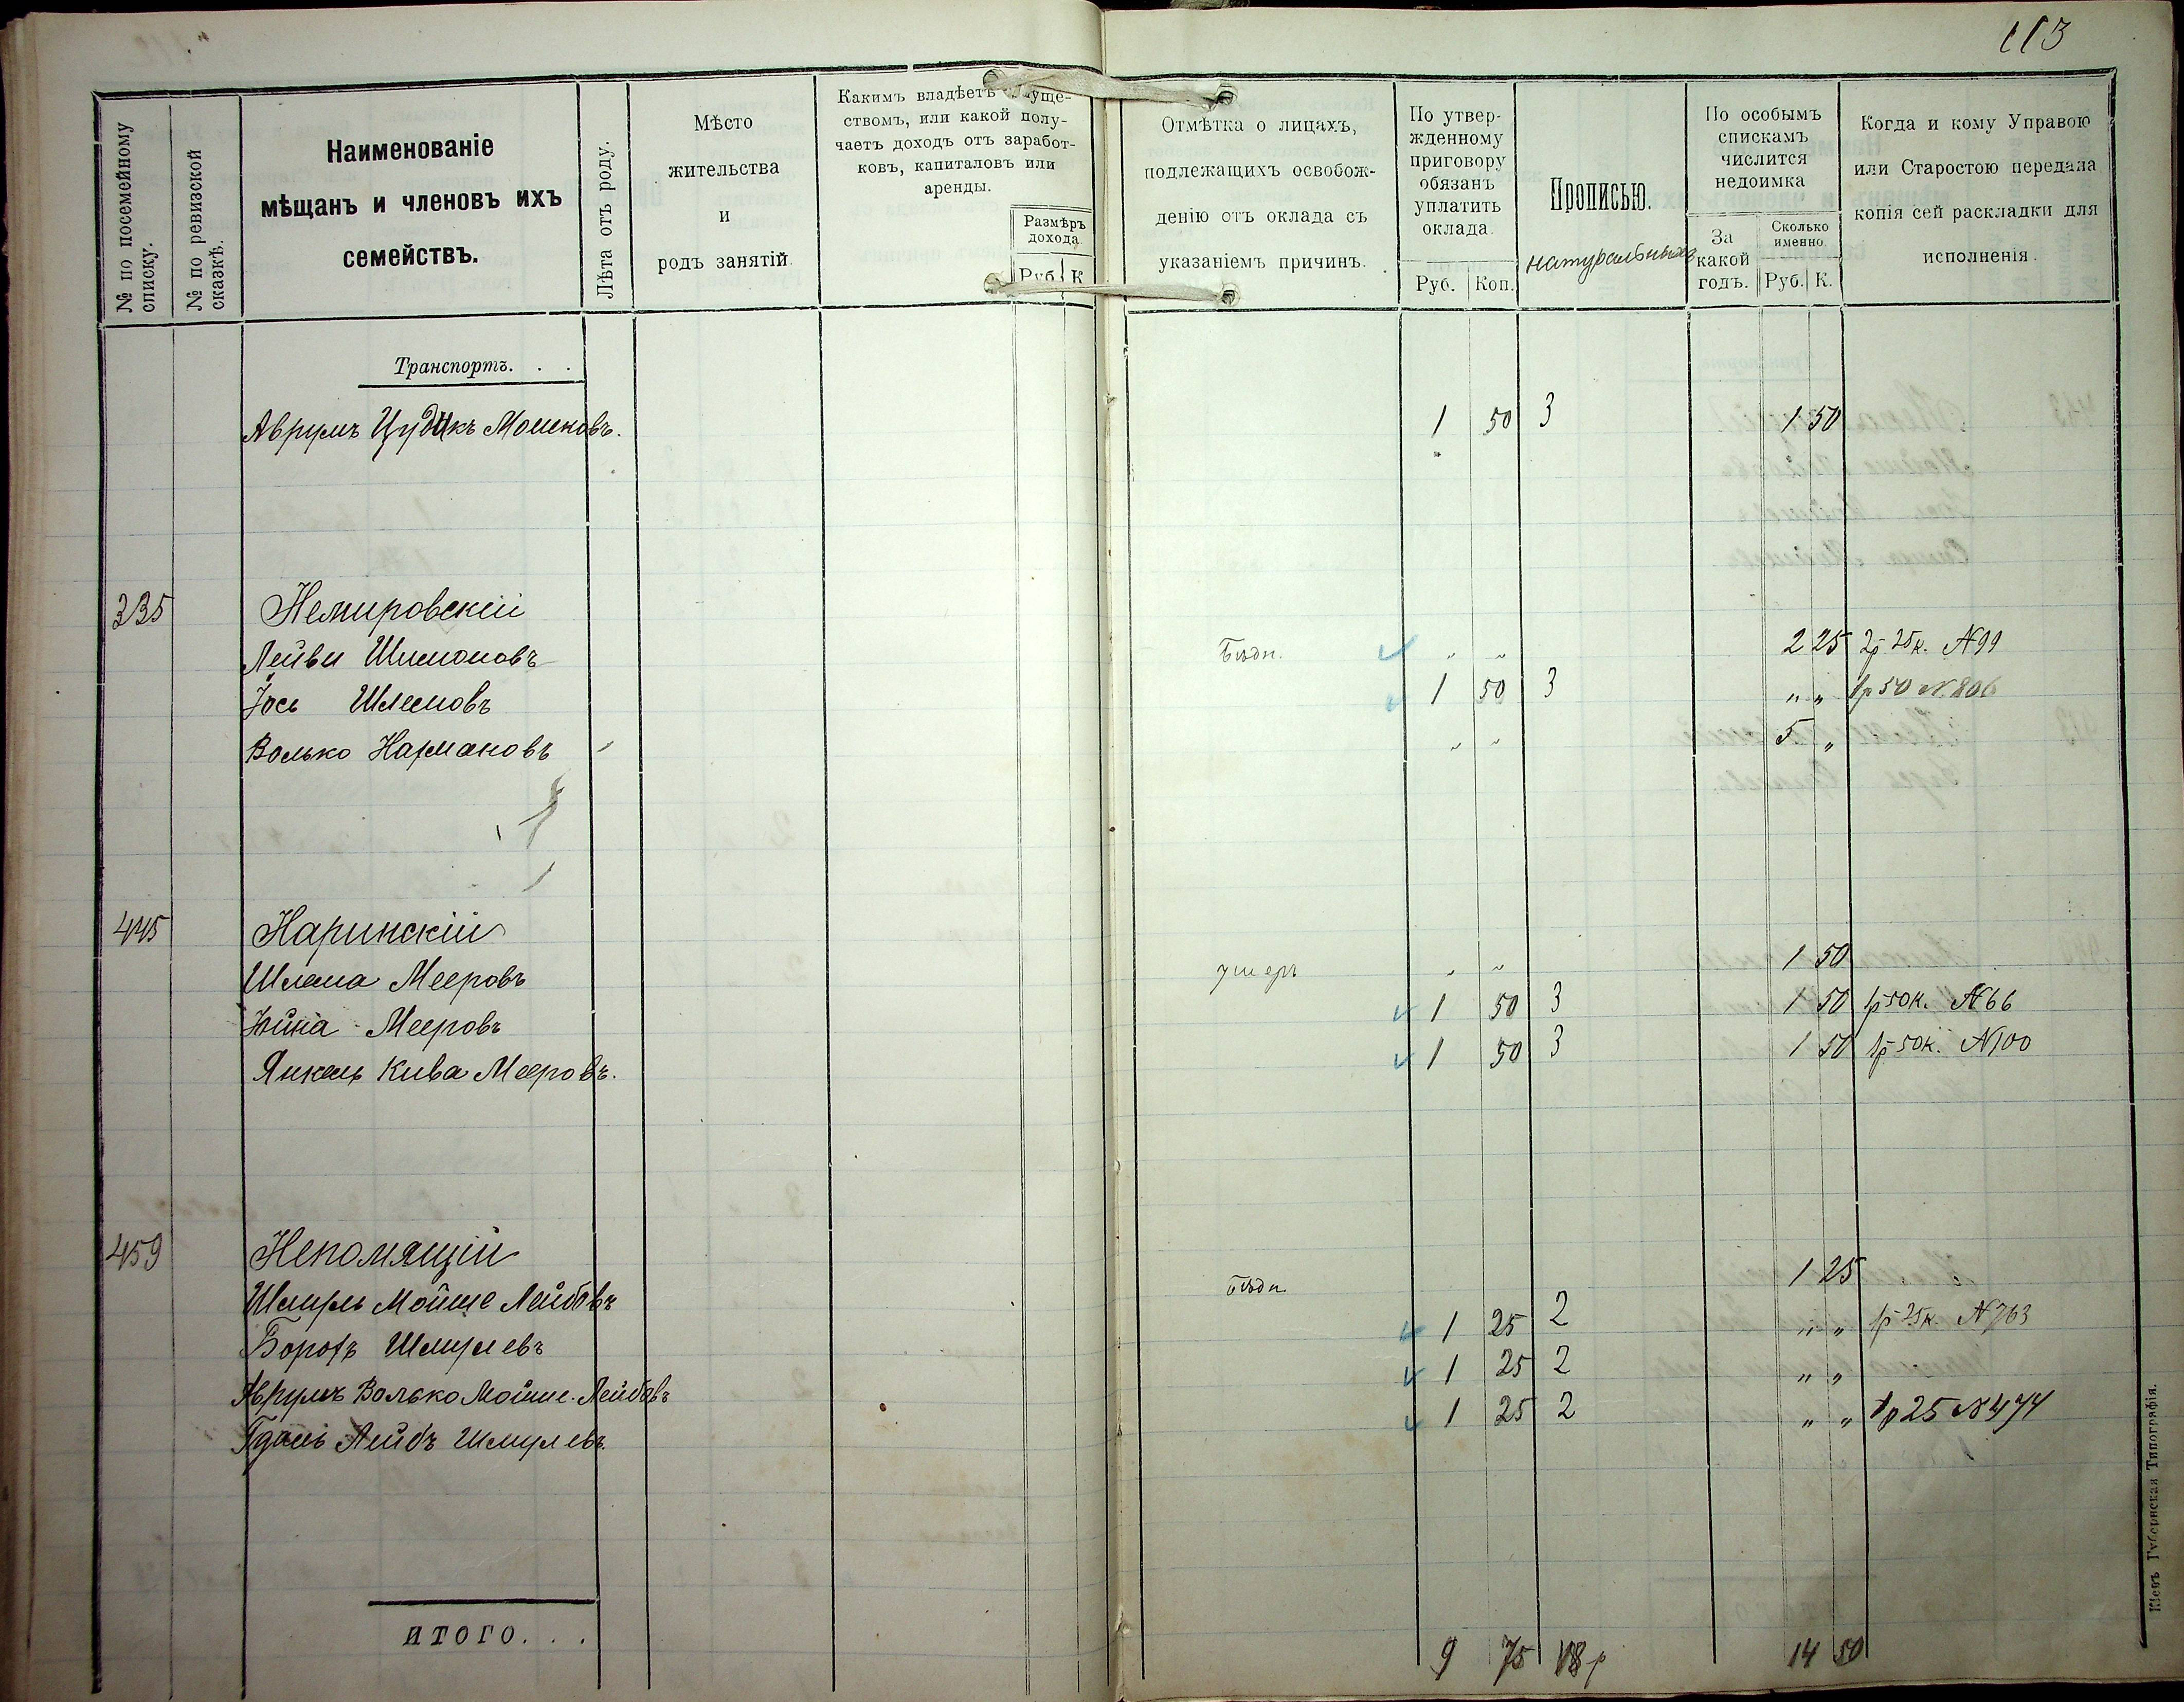 113
№ по посемейному списку.
№ по ревизской сказкѣ.
Наименованіе
мѣщанъ и членовъ ихъ
семействъ.
Лѣта отъ роду.
Мѣсто
жительства
и
родъ занятій
Какимъ владѣетъ муще-
ствомъ, или какой полу-
чаетъ доходъ отъ заработ-
ковъ, капиталовъ или
аренды.
Размѣръ
дохода
Руб. К
Отмѣтка о лицахъ,
подлежащихъ освобож-
денію отъ оклада съ
указаніемъ причинъ.
По утвер-
жденному
приговору
обязанъ
уплатить
оклада.
Руб. Коп.
Прописью.
натуральныхъ
По особымъ
спискамъ
числится
недоимка
За
какой
годъ.
Сколько
именно
Руб. К.
Когда и кому Управою
или Старостою передана
копія сей раскладки для
исполненія.
Транспортъ. . .
Аврумъ Цудикъ Мошковъ. 1 50 3 1 50
335 Немировскій
Лейви Шимоновъ Бѣдн. " " 2 25 2р 25к. №99
Іось Шлемовъ 1 50 3 " " 1р 50 №806
Волько Нахмановъ " " 5 "
445 Наринскій
Шлема Мееровъ умеръ " " 1 50
Хайна Мееровъ 1 50 3 1 50 1р 50к. №66
Янкель Кива Мееровъ. 1 50 3 1 50 1р 50к. №100
459 Непомящій
Шмуль Мойше Лейбовъ Бѣдн. 1 25
Борохъ Шмулевъ 1 25 2 " " 1р 25к. №763
Аврумъ Волько Мойше-Лейбовъ 1 25 2 " "
Гдаль Лейбъ Шмулевъ. 1 25 2 " " 1р 25 №474
ИТОГО. . . 9 75 18р 14 50
Кіевъ Губернская Типографія.